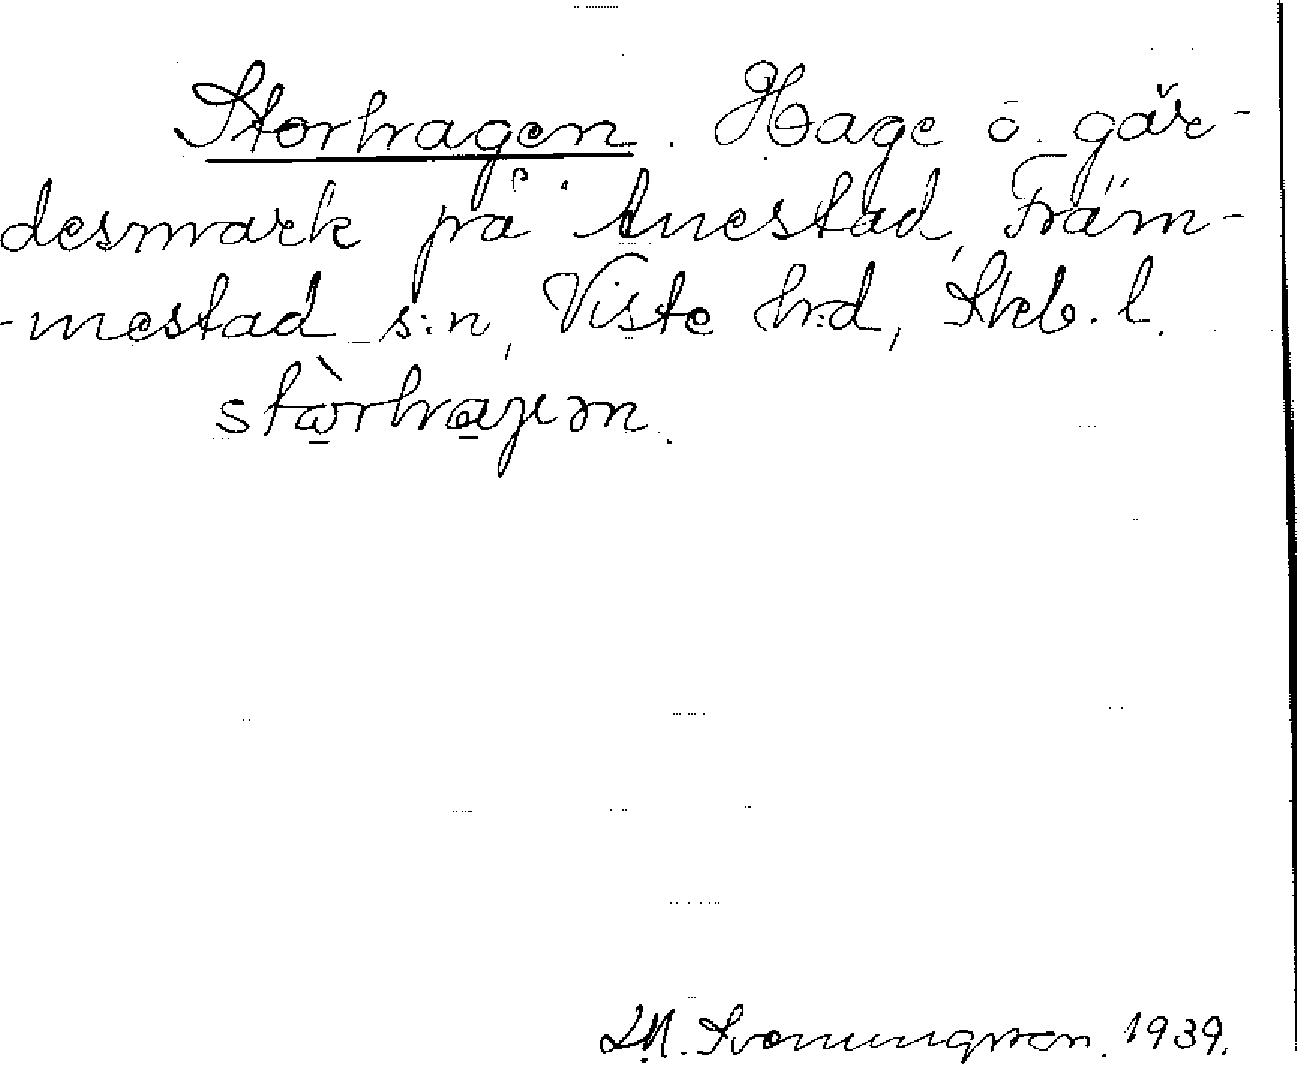 Storhagen. Hage o. gär-
desmark på Anestad, Främ-
-mestad s:n, Viste h:d, Skb. l.
stòrhagən.
Svenungsson. 1939.